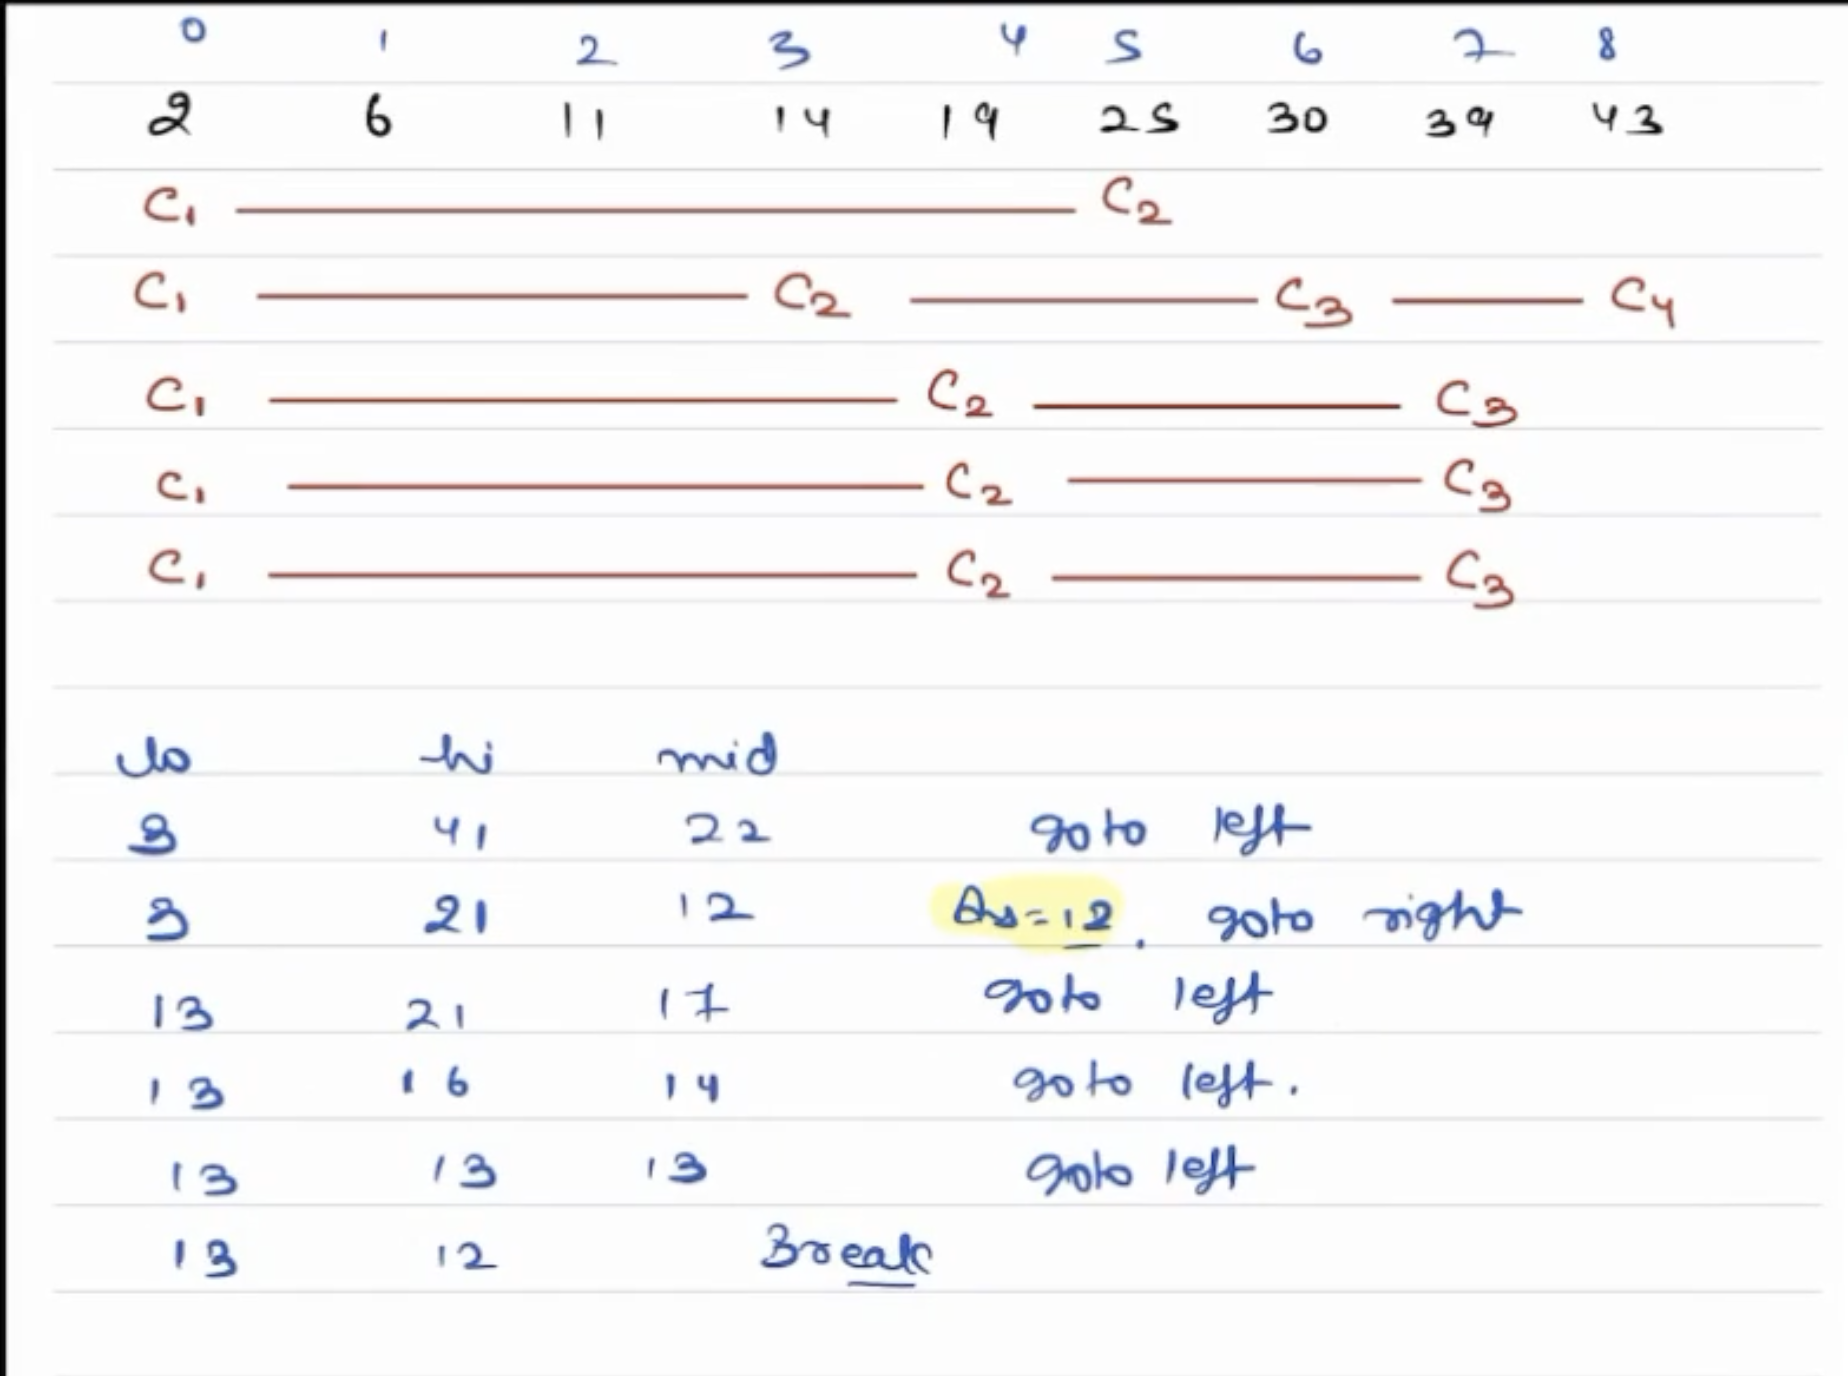 0 1 2 3 4 5 6 7 8
2 6 11 14 19 25 30 39 43
C1 C2
C1 C2 C3 C4
C1 C2 C3
C1 C2 C3
C1 C2 C3
lo hi mid
3 41 22 goto left
3 21 12 Ans=12. goto right
13 21 17 goto left
13 16 14 goto left.
13 13 13 goto left
13 12 Break